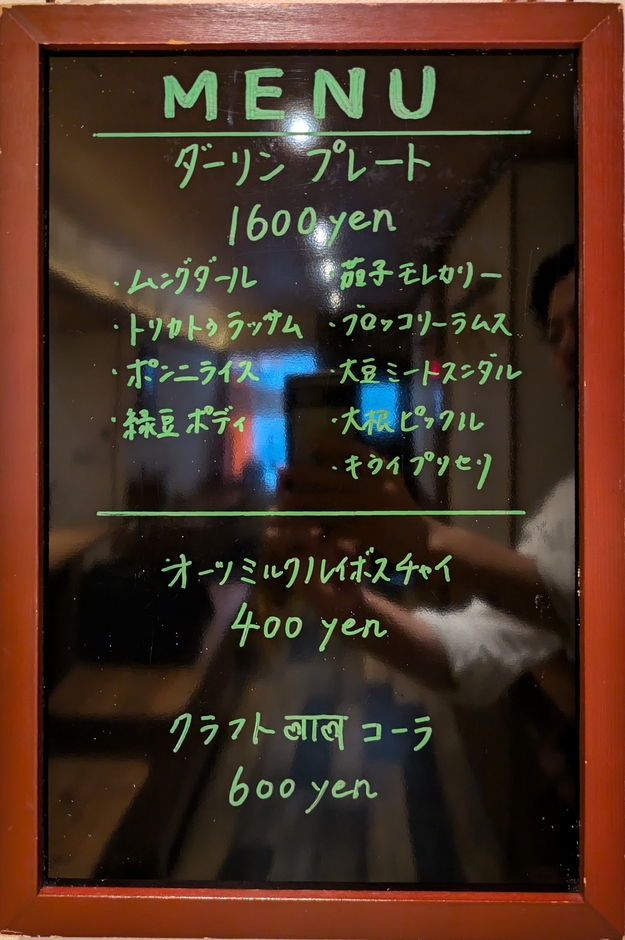 MENU
ダーリン プレート
1600 yen
・ムングダール
・トリカトゥラッサム
・ポンニライス
・緑豆ポディ
・茄子モレカリー
・ブロッコリーラムス
・大豆ミートスンダル
・大根ピックル
・キウイプリセリ
オーツミルクルイボスチャイ
400 yen
クラフト लाल コーラ
600 yen